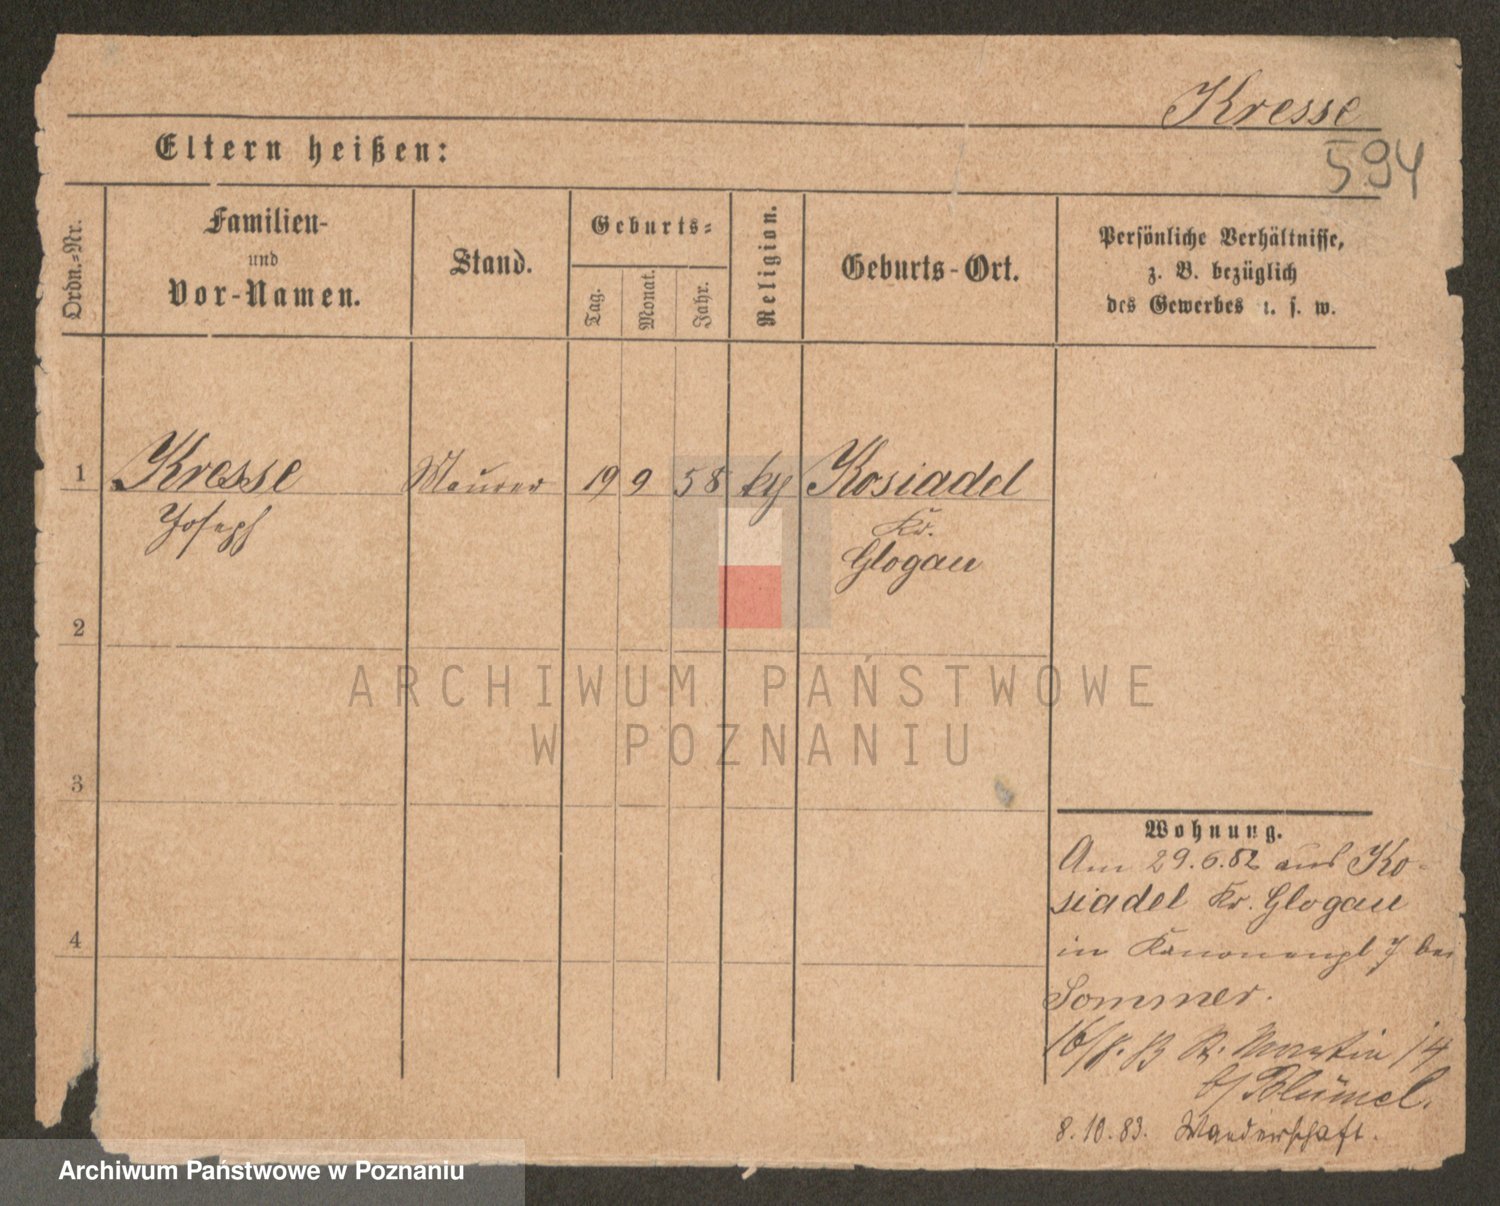 Kresse
594
Eltern heißen:
Ordn.-Nr.
Familien-
und
Vor-Namen.
Stand.
Geburts-
Tag.
Monat.
Jahr.
Religion.
Geburts-Ort.
Persönliche Verhältnisse,
z. B. bezüglich
des Gewerbes u. s. w.
1 Kresse Maurer 19 9 58 Kosiadel
Joseph Kr.
Glogau
2
3
4
Wohnung.
Am 29.6.82 aus Ko-
siadel Kr. Glogau
in Kanonenpl 7 bei
Sommer.
St. Martin 14
b/ Blümel.
8.10.83. Wanderschaft.
ARCHIWUM PAŃSTWOWE
W POZNANIU
Archiwum Państwowe w Poznaniu